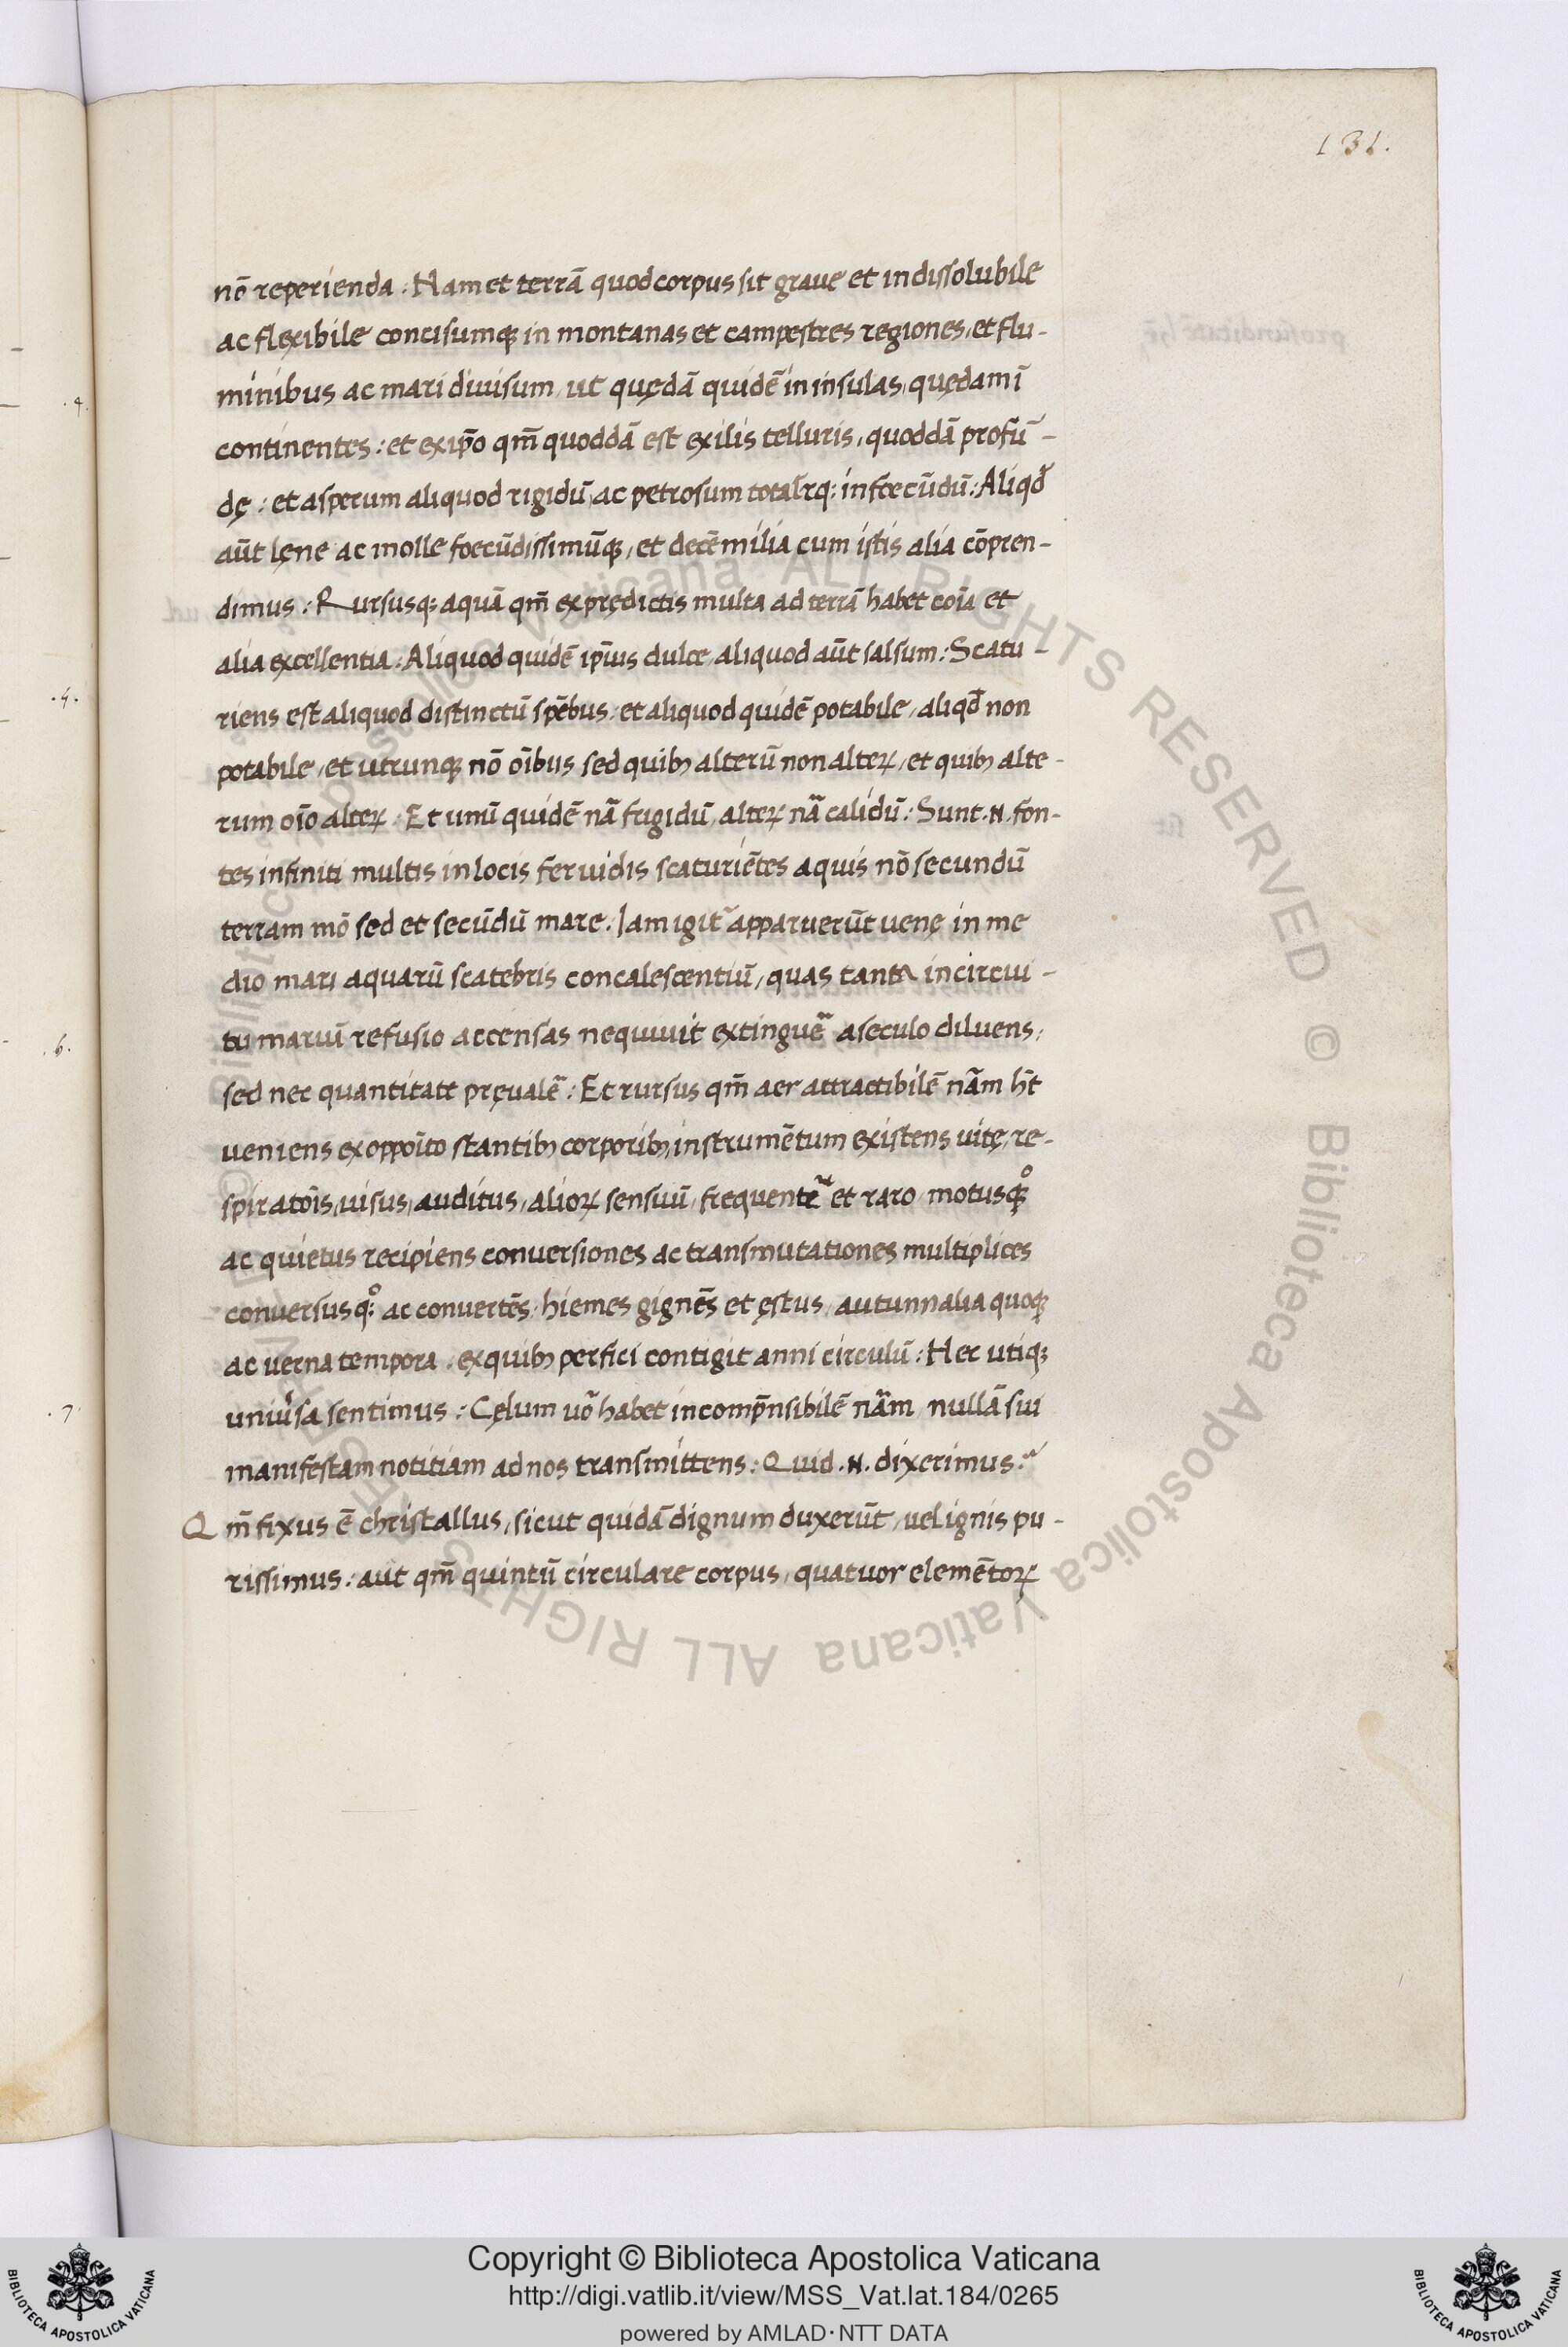 131.
nō reperienda : Nam et terrā quod corpus sit graue et indissolubile
ac flexibile concisumqꝫ in montanas et campestres regiones, et flu-
minibus ac mari diuisum, ut quędā quidē in insulas, quędam ī
continentes : et ex ip̄o qm̄ quoddā est exilis telluris, quoddā profū-
dę : et asperum aliquod rigidū, ac petrosum totalr̄q: infoecūdū : Aliqd̄
aūt lęne ac molle foecūdissimūqꝫ, et decē milia cum istis alia cōpren-
dimus : Rursusq: aquā qm̄ ex prędictis multa ad terrā habet coīa et
alia excellentia : Aliquod quidē ip̄ius dulce, aliquod aūt salsum : Scatu-
riens est aliquod distinctū spēbus, et aliquod quidē potabile, aliqd̄ non
potabile, et utrunqꝫ nō oībus sed quibꝫ alterū non alteꝝ, et quibꝫ alte-
rum oīo alteꝝ. Et unū quidē nā frigidū, alteꝝ nā calidū : Sunt .N. fon-
tes infiniti multis in locis feruidis scaturiētes aquis nō secundū
terram mō sed et secūdū mare. Iam igit̄ apparuerūt uenę in me
dio mari aquarū scatebris concalescentiū, quas tanta in circui-
tu maruī refusio accensas nequiuit extinguē a seculo diluens,
sed nec quantitate pręualē : Et rursus qm̄ aer attractibilē nām h̄t
ueniens ex oppoīto stantibꝫ corporibꝫ, instrumētum existens uitę, re-
spiratōis, uisus, auditus, alioꝝ sensuū, frequentē et raro motusqꝫº
ac quietus recipiens conuersiones ac transmutationes multiplices
conuersusq:º ac conuertēs, hiemes gignēs et ęstus, autunnalia quoqꝫ
ac uerna tempora, ex quibꝫ perfici contigit anni circulū : Hec utiqꝫ
uniūsa sentimus : Cęlum uō habet incomp̄nsibilē nām, nullā sui
manifestam notitiam ad nos transmittens : Quid .N. dixerimus :
Qm̄ fixus ē christallus, sicut quidā dignum duxerūt, uel ignis pu-
rissimus : aut qm̄ quintū circulare corpus, quatuor elemētoꝝ
.4.
.4.
.6.
.7.
Biblioteca Apostolica Vaticana ALL RIGHTS RESERVED ©
Copyright © Biblioteca Apostolica Vaticana
http://digi.vatlib.it/view/MSS_Vat.lat.184/0265
powered by AMLAD·NTT DATA
BIBLIOTECA APOSTOLICA VATICANA
BIBLIOTECA APOSTOLICA VATICANA